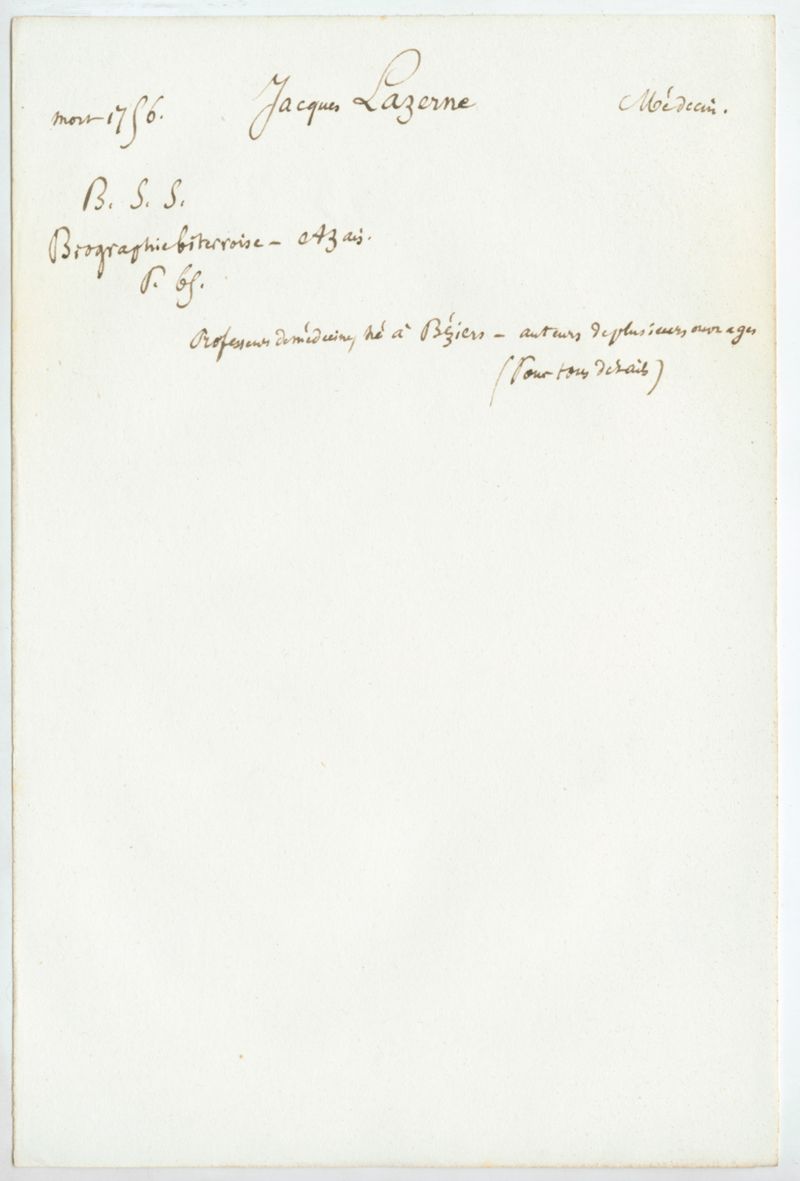 mort 1756. Jacques Lazerne Médecin.
B. S. S.
Biographie biterroise – Azais.
P. 65.
Professeurs de médecine, né à Béziers – auteurs de plusieurs ouvrages
(Pour tous détails)